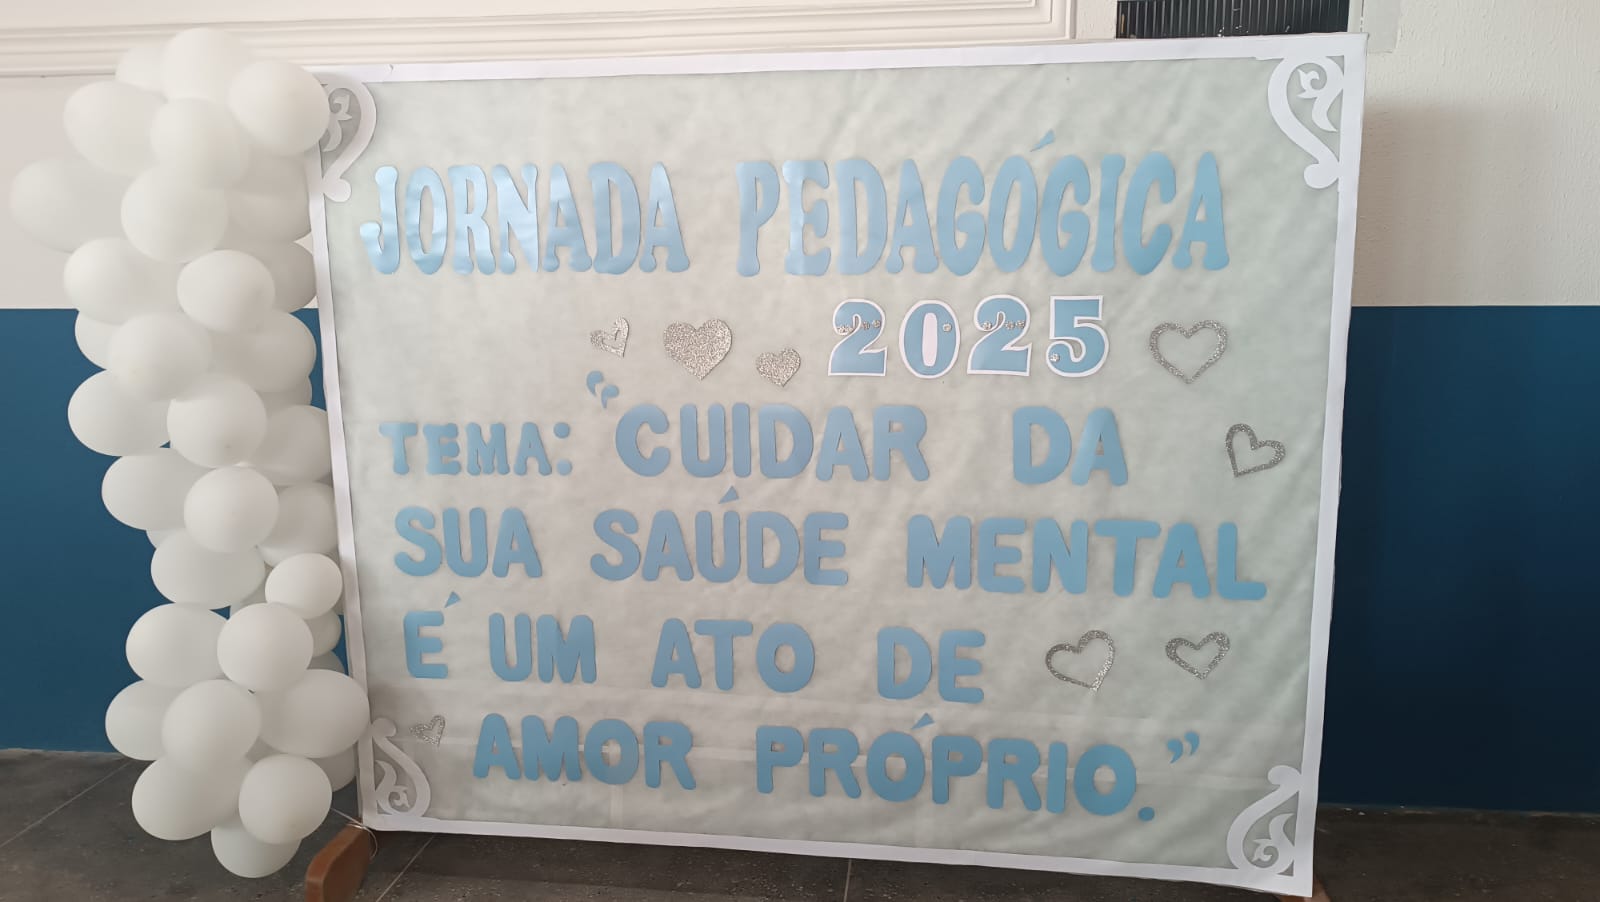 JORNADA PEDAGÓGICA
2025
TEMA: "CUIDAR DA
SUA SAÚDE MENTAL
É UM ATO DE
AMOR PRÓPRIO."